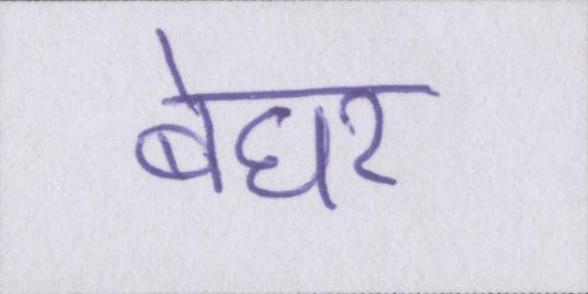 बेघर